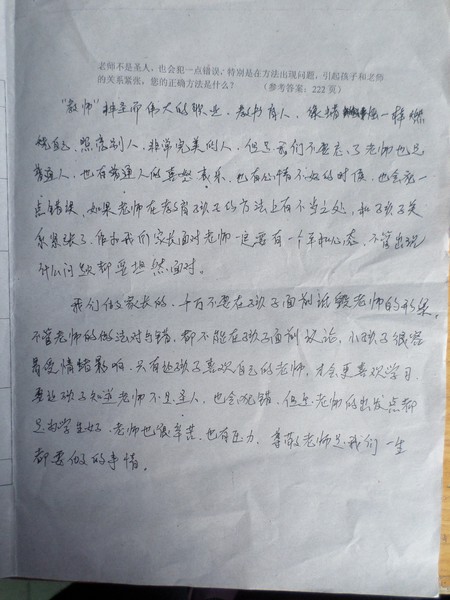 老师不是圣人，也会犯一点错误，特别是在方法出现问题，引起孩子和老师
的关系紧张，您的正确方法是什么？（参考答案：222 页）
“教师”神圣而伟大的职业，教书育人，像蜡烛一样燃
烧自己，照亮别人，非常完美的人，但是我们不要忘了老师也是
普通人，也有普通人的喜怒哀乐，也有心情不好的时候，也会犯一
点错误，如果老师在教育孩子的方法上有不当之处，和孩子关
系紧张了，作为我们家长面对老师一定要有一个平和心态，不管出现
什么问题都要坦然面对。
我们做家长的，千万不要在孩子面前诋毁老师的形象，
不管老师的做法对与错，都不能在孩子面前议论，小孩子很容
易受情绪影响，只有让孩子喜欢自己的老师，才会更喜欢学习。
要让孩子知道老师不是圣人，也会犯错，但是老师的出发点都
是为学生好，老师也很辛苦，也有压力，尊敬老师是我们一生
都要做的事情。